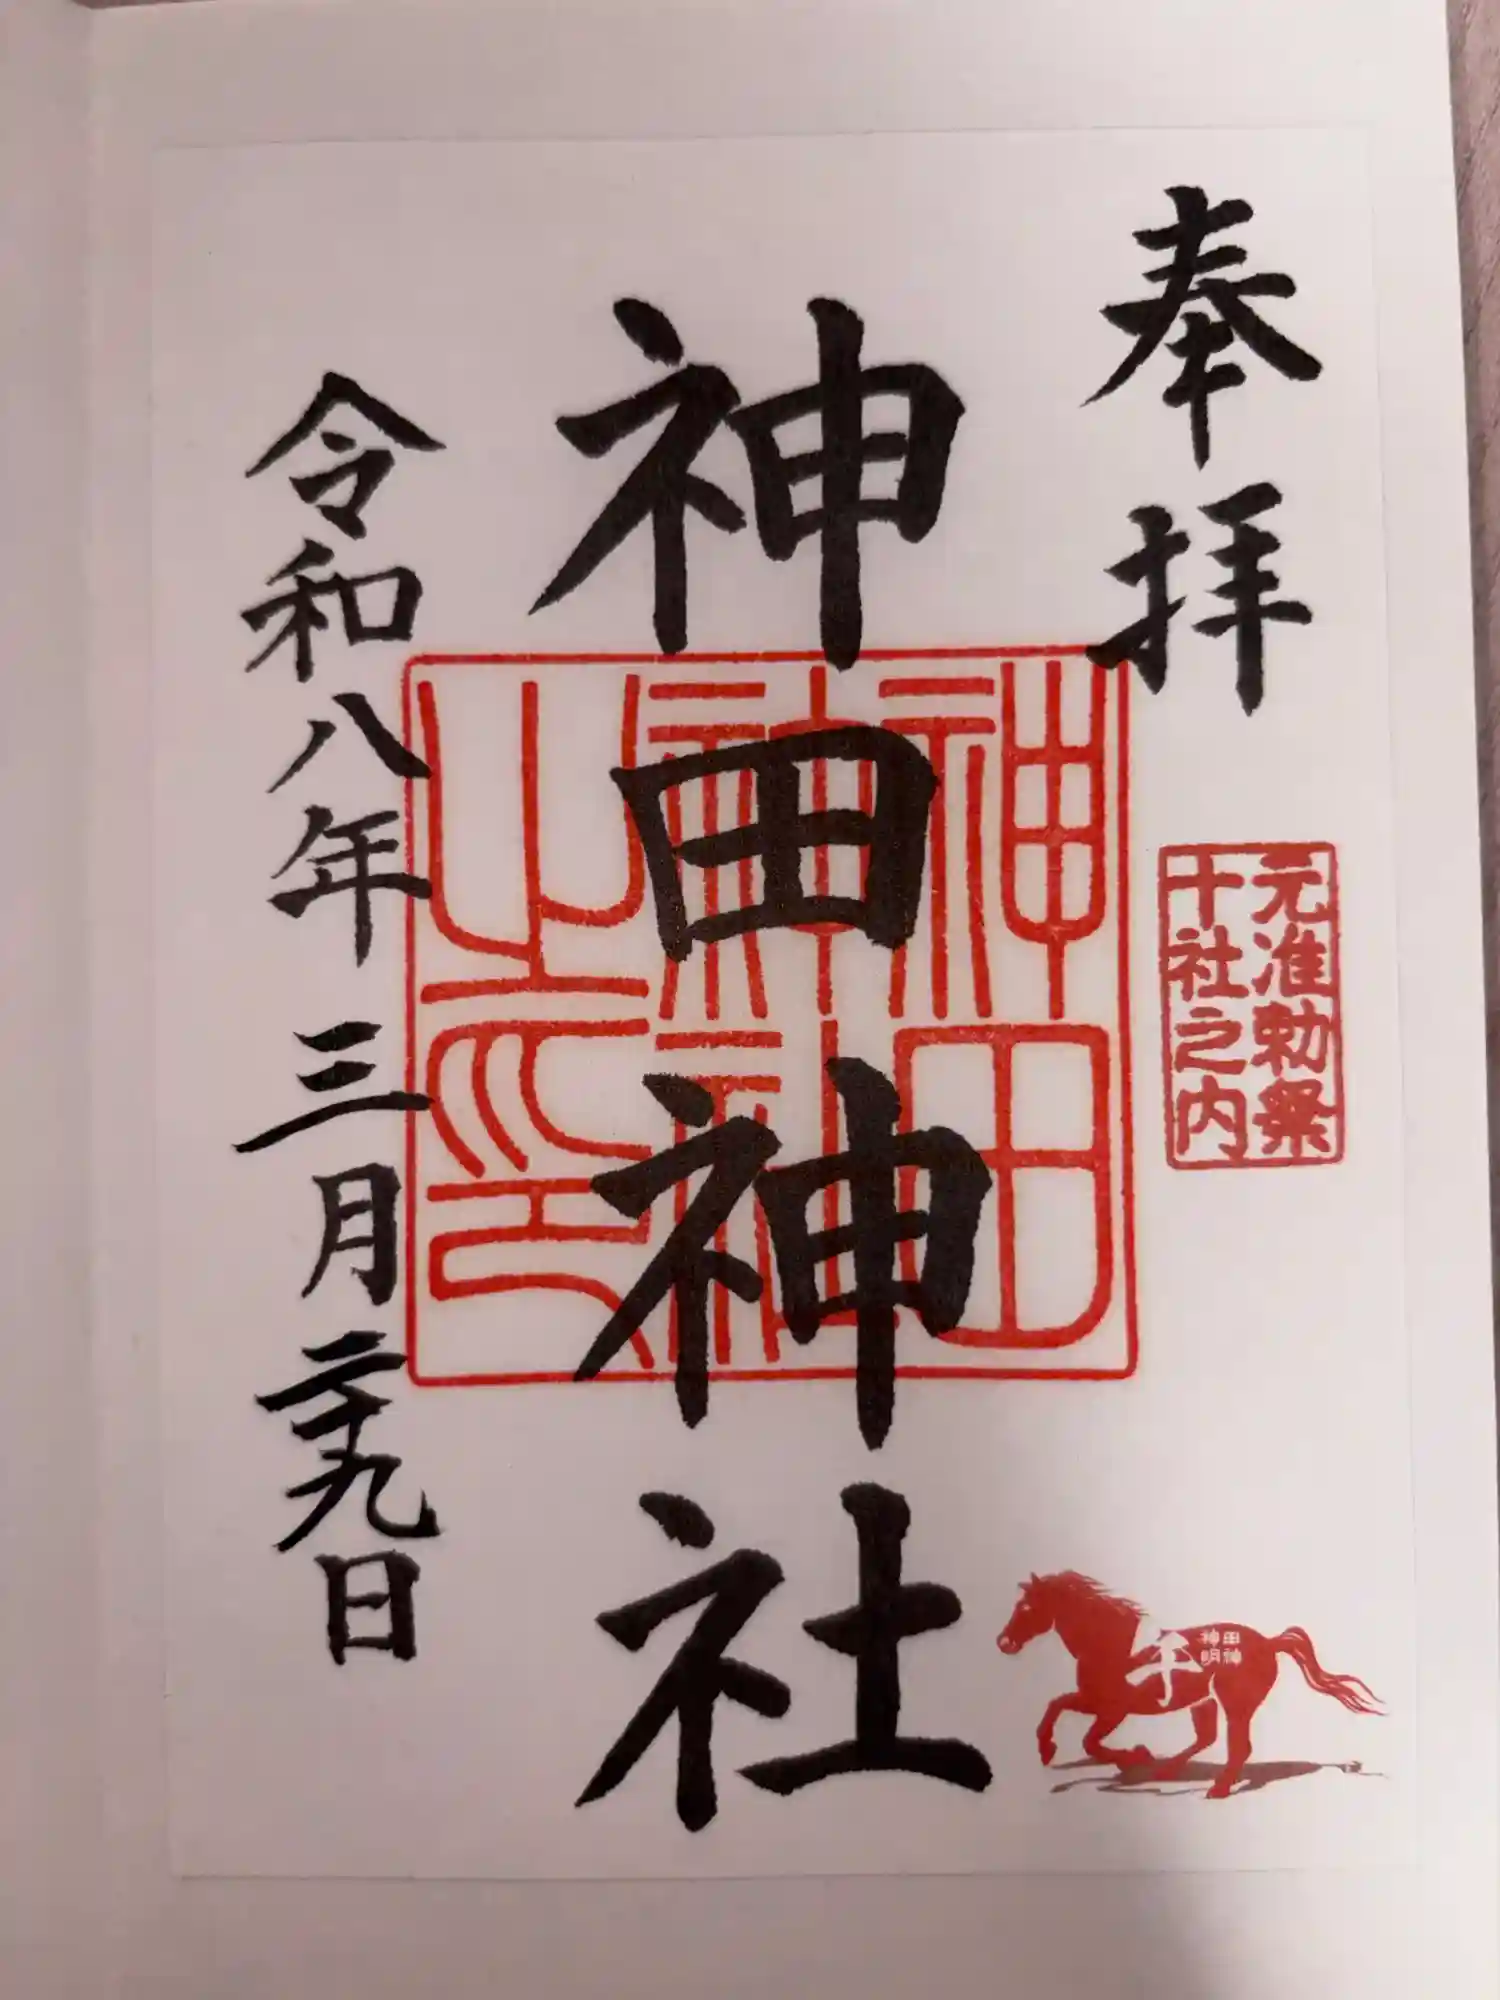 奉拝
元准勅祭
十社之内
神田神社
神田
神社
之印
令和八年三月二十九日
午
神田
明神